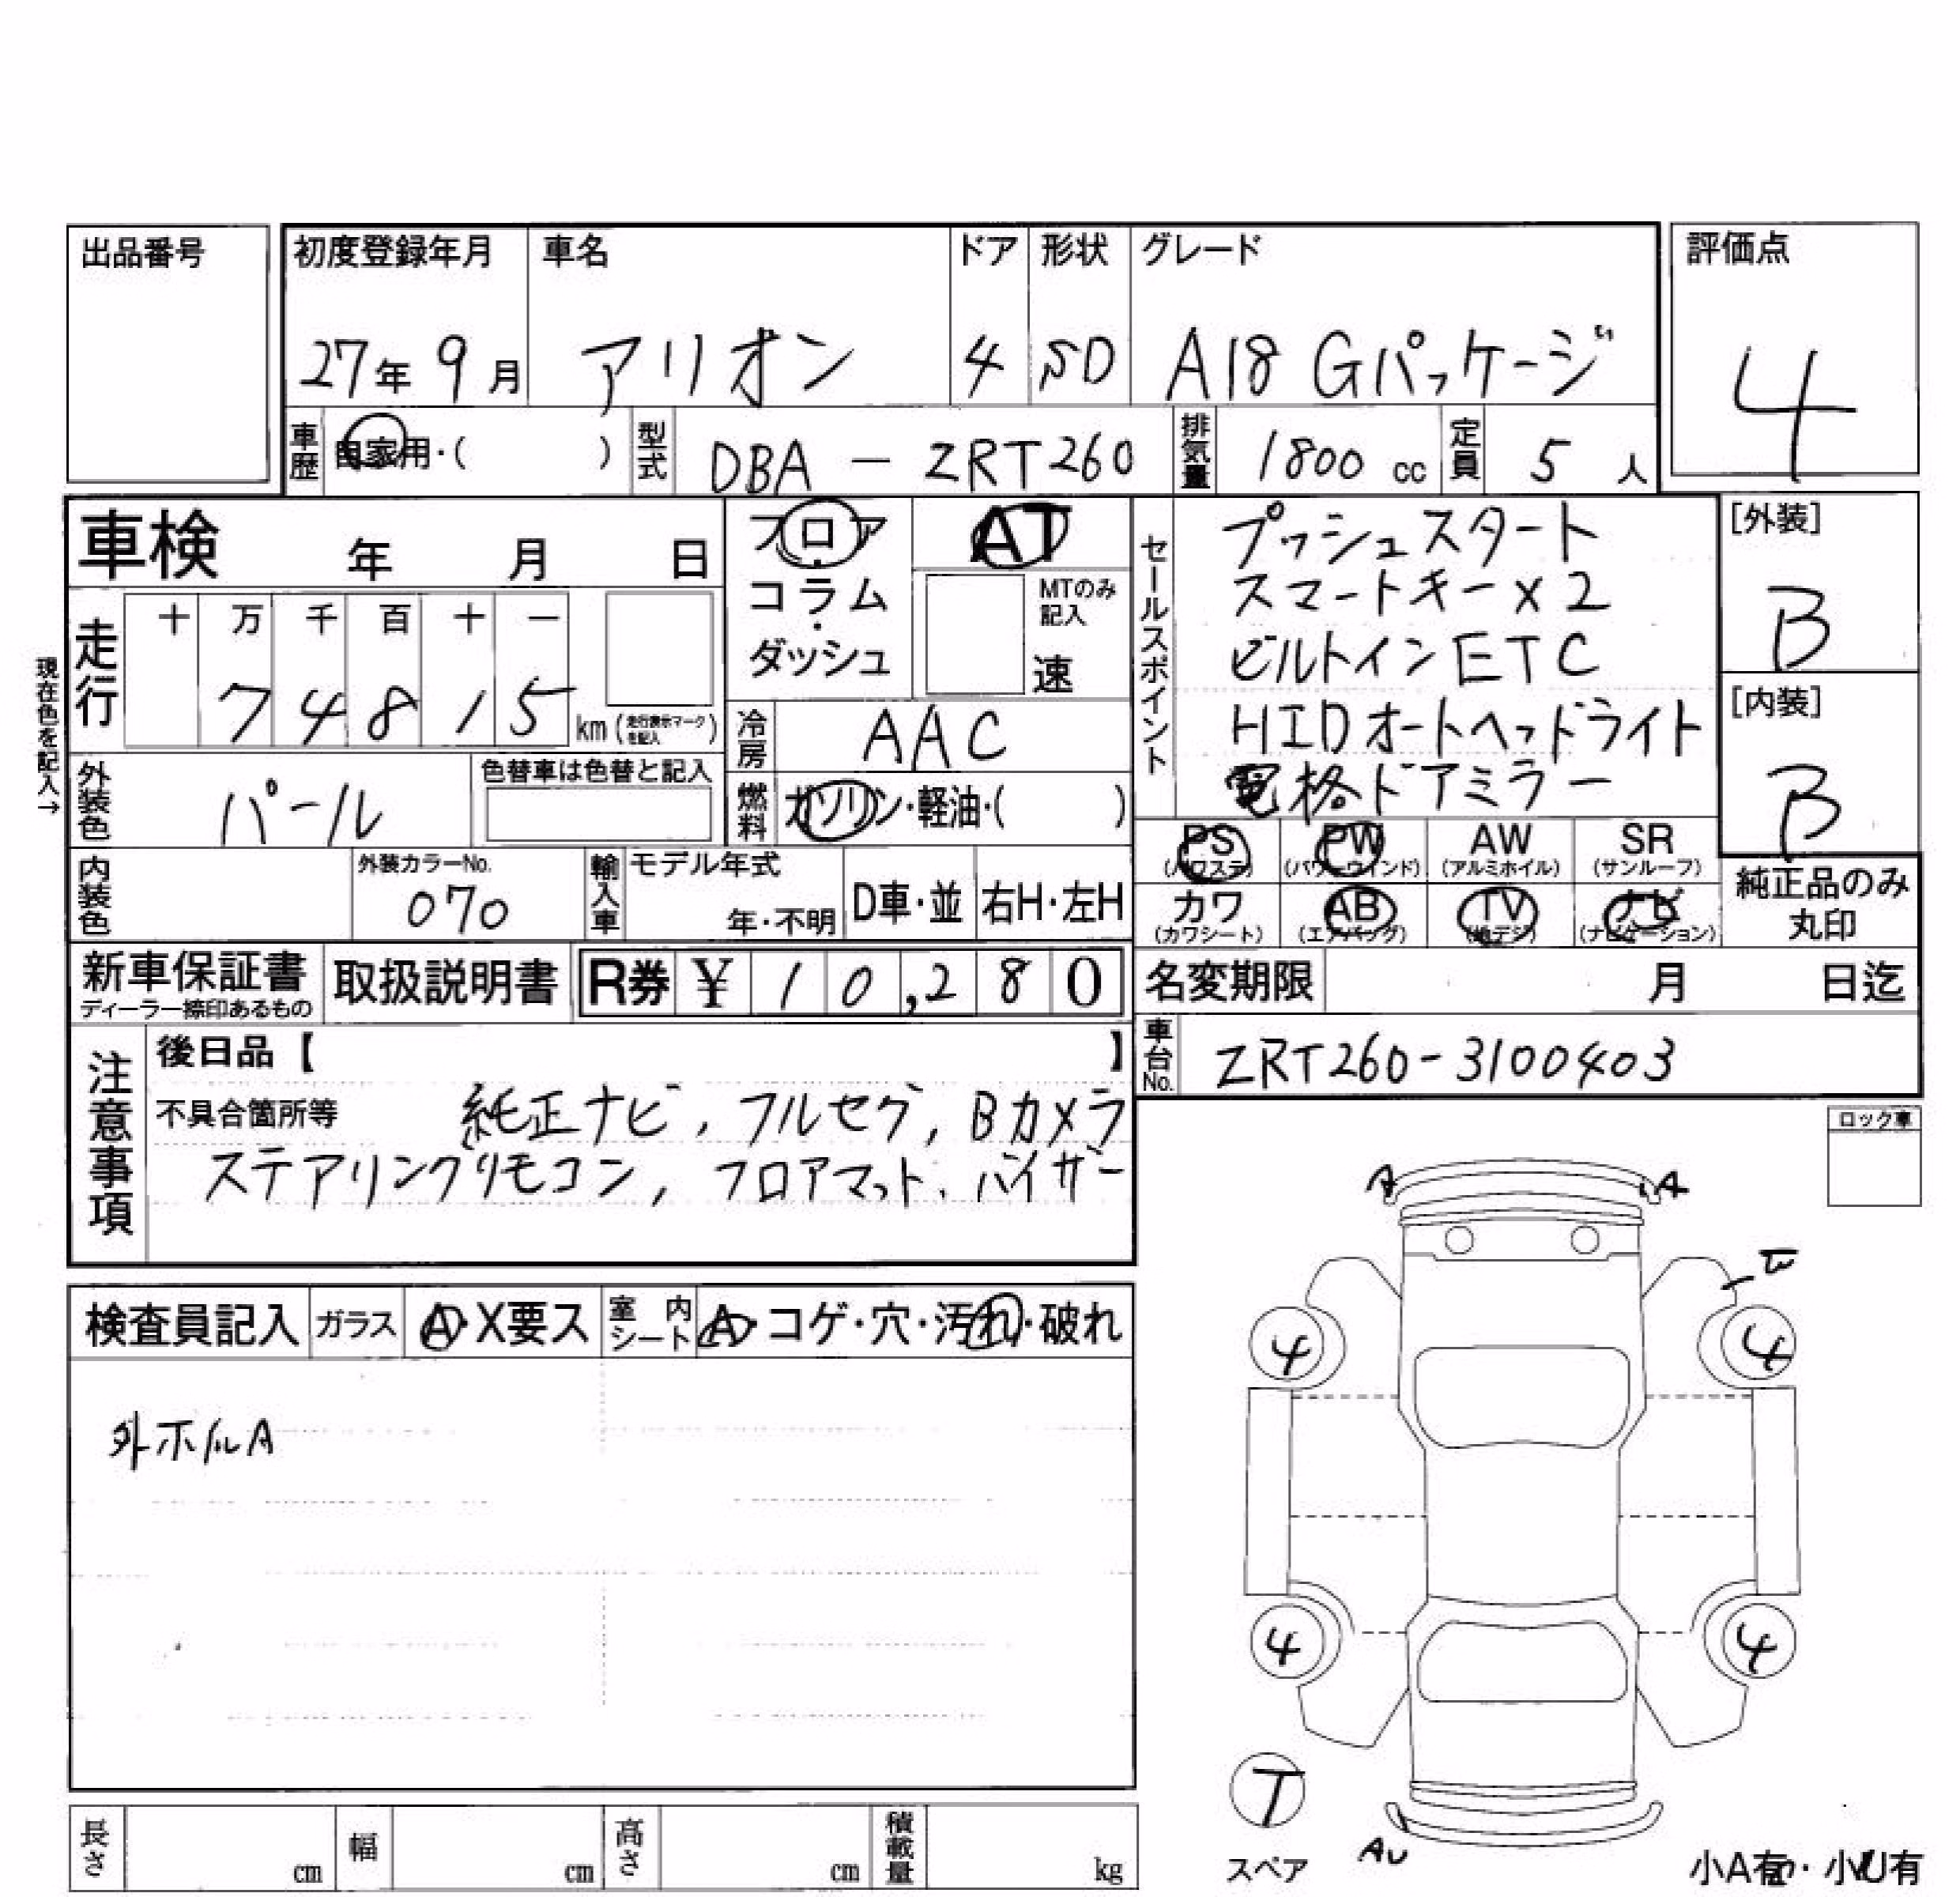 出品番号
初度登録年月 車名 ドア 形状 グレード 評価点
27年 9月 アリオン 4 SD A18 Gパッケージ 4
車歴 自家用・( ) 型式 DBA - ZRT260 排気量 1800 cc 定員 5 人
車検 年 月 日
フロア・コラム・ダッシュ
AT
MTのみ記入
速
セールスポイント
プッシュスタート
スマートキー×2
ビルトインETC
HIDオートヘッドライト
電格ドアミラー
[外装]
B
[内装]
B
現在色を記入→
走行 十 万 千 百 十 一
7 4 8 1 5 km (走行表示マークを記入)
冷房 AAC
外装色 パール 色替車は色替と記入
燃料 ガソリン・軽油・( )
PS (パワステ) PW (パワーウインド) AW (アルミホイル) SR (サンルーフ)
カワ (カワシート) AB (エアバッグ) TV (地デジ) ナビ (ナビゲーション)
純正品のみ
丸印
内装色 外装カラーNo. 070 輸入車 モデル年式 年・不明 D車・並 右H・左H
新車保証書 ディーラー捺印あるもの 取扱説明書 R券 ¥ 10,280
名変期限 月 日迄
車台No. ZRT260-3100403
注意事項
後日品【 】
不具合箇所等 純正ナビ, フルセグ, Bカメラ
ステアリングリモコン, フロアマット, バイザー
ロック車
A A
検査員記入 ガラス A・X要ス 室内シート A・コゲ・穴・汚れ・破れ
外ホイルA
4 4
4 4
T
スペア
AU
小A有・小U有
長さ cm 幅 cm 高さ cm 積載量 kg